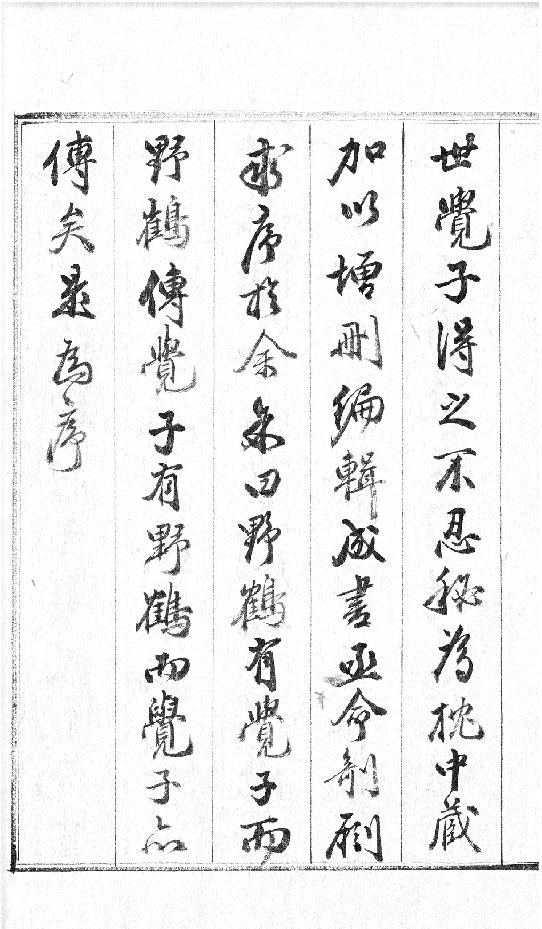 世覺子得之不忍秘為枕中藏
加以增刪編輯成書亟命剞劂
求序於余余曰野鶴有覺子而
野鶴傳覺子有野鶴而覺子亦
傳矣是為序